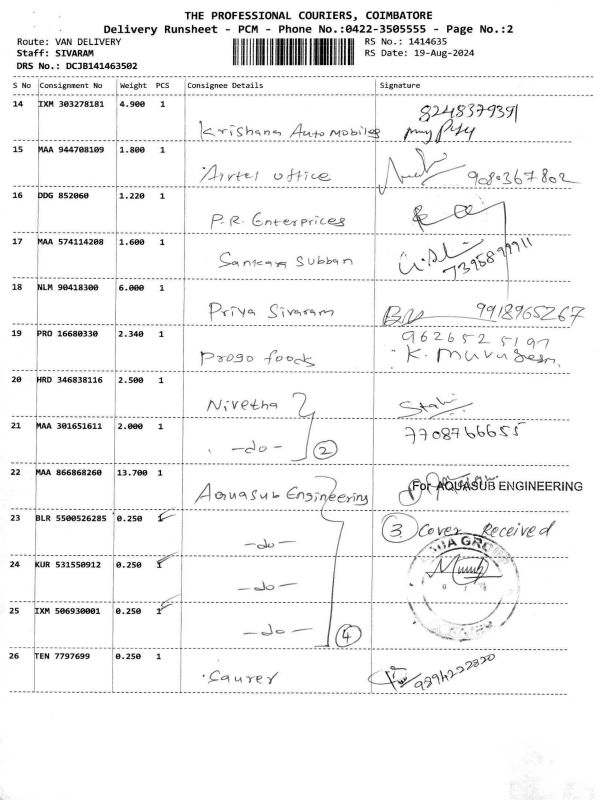 THE PROFESSIONAL COURIERS, COIMBATORE
Delivery Runsheet - PCM - Phone No.:0422-3505555 - Page No.:2
Route: VAN DELIVERY RS No.: 1414635
Staff: SIVARAM RS Date: 19-Aug-2024
DRS No.: DCJB141463502
S No Consignment No Weight PCS Consignee Details Signature
14 IXM 303278181 4.900 1 Krishana Auto Mobiles 8248379391
15 MAA 944708109 1.800 1 Airtel office
16 DDG 852060 1.220 1 P.R. Enterprices
17 MAA 574114208 1.600 1 Sankara Subban 7395899911
18 NLM 90418300 6.000 1 Priya Sivaram 9918965267
19 PRO 16680330 2.340 1 Progo foods 9626525197
K. Murugesan.
20 HRD 346838116 2.500 1 Nivetha
21 MAA 301651611 2.000 1 -do- 2 7708766655
22 MAA 866868260 13.700 1 Aquasub Engineering For AQUASUB ENGINEERING
23 BLR 5500526285 0.250 1 -do- 3 Cover Received
24 KUR 531550912 0.250 1 -do-
25 IXM 506930001 0.250 1 -do- 4
26 TEN 7797699 0.250 1 Saurer 9894222820